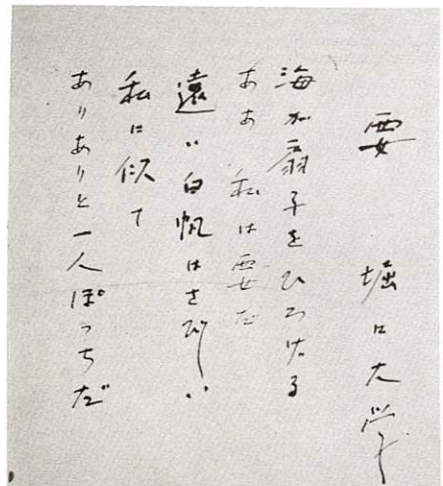 要　堀口大学
海が扇子をひろげる
ああ　私は要だ
遠い白帆はさびしい
私に似て
ありありと一人ぽっちだ